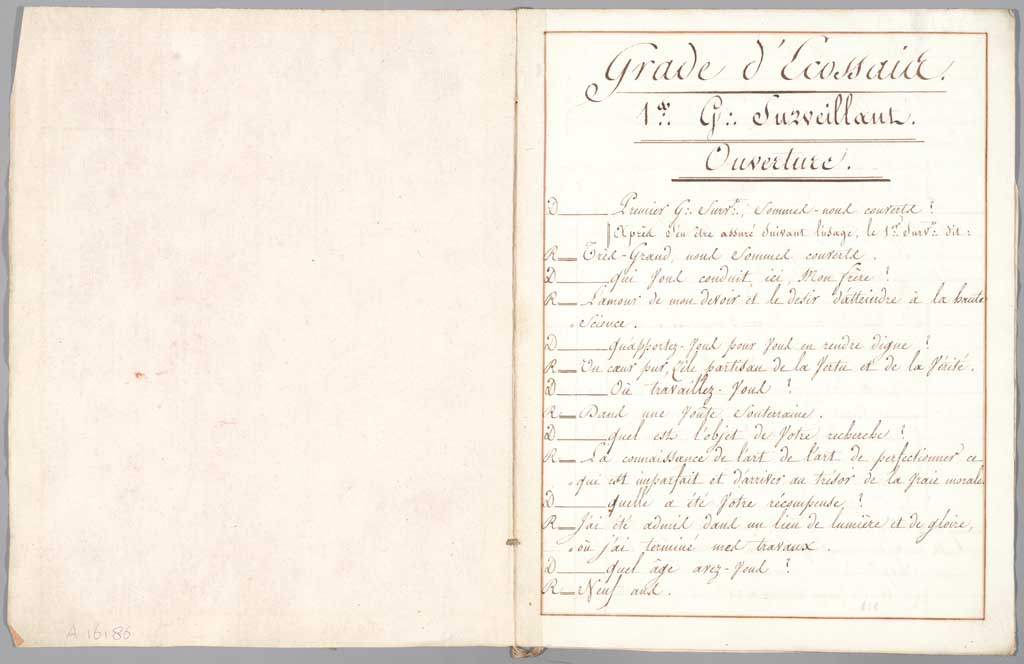 Grade d'Ecossais.
1er. G∴ Surveillant.
Ouverture.
D Premier G∴ Survt., Sommes-nous couverts ?
Après s'en être assuré suivant l'usage, le 1er. Survt. dit :
R Très-Grand, nous Sommes couverts.
D qui Vous conduit ici, Mon frère ?
R L'amour de mon devoir et le desir d'atteindre à la haute
Science.
D qu'apportez-Vous pour Vous en rendre digne ?
R Un cœur pur, Zèlé partisan de la Vertu et de la Vérité.
D Où travaillez-Vous ?
R Dans une Voûte Souterraine.
D quel est l'objet de Votre recherche ?
R La connaissance de l'art de l'art de perfectionner ce
qui est imparfait et d'arriver au trésor de la Vraie morale.
D quelle a été Votre récompense ?
R J'ai été admis dans un lieu de lumière et de gloire,
où j'ai terminé mes travaux.
D quel âge avez-Vous ?
R Neuf ans.
A 16186